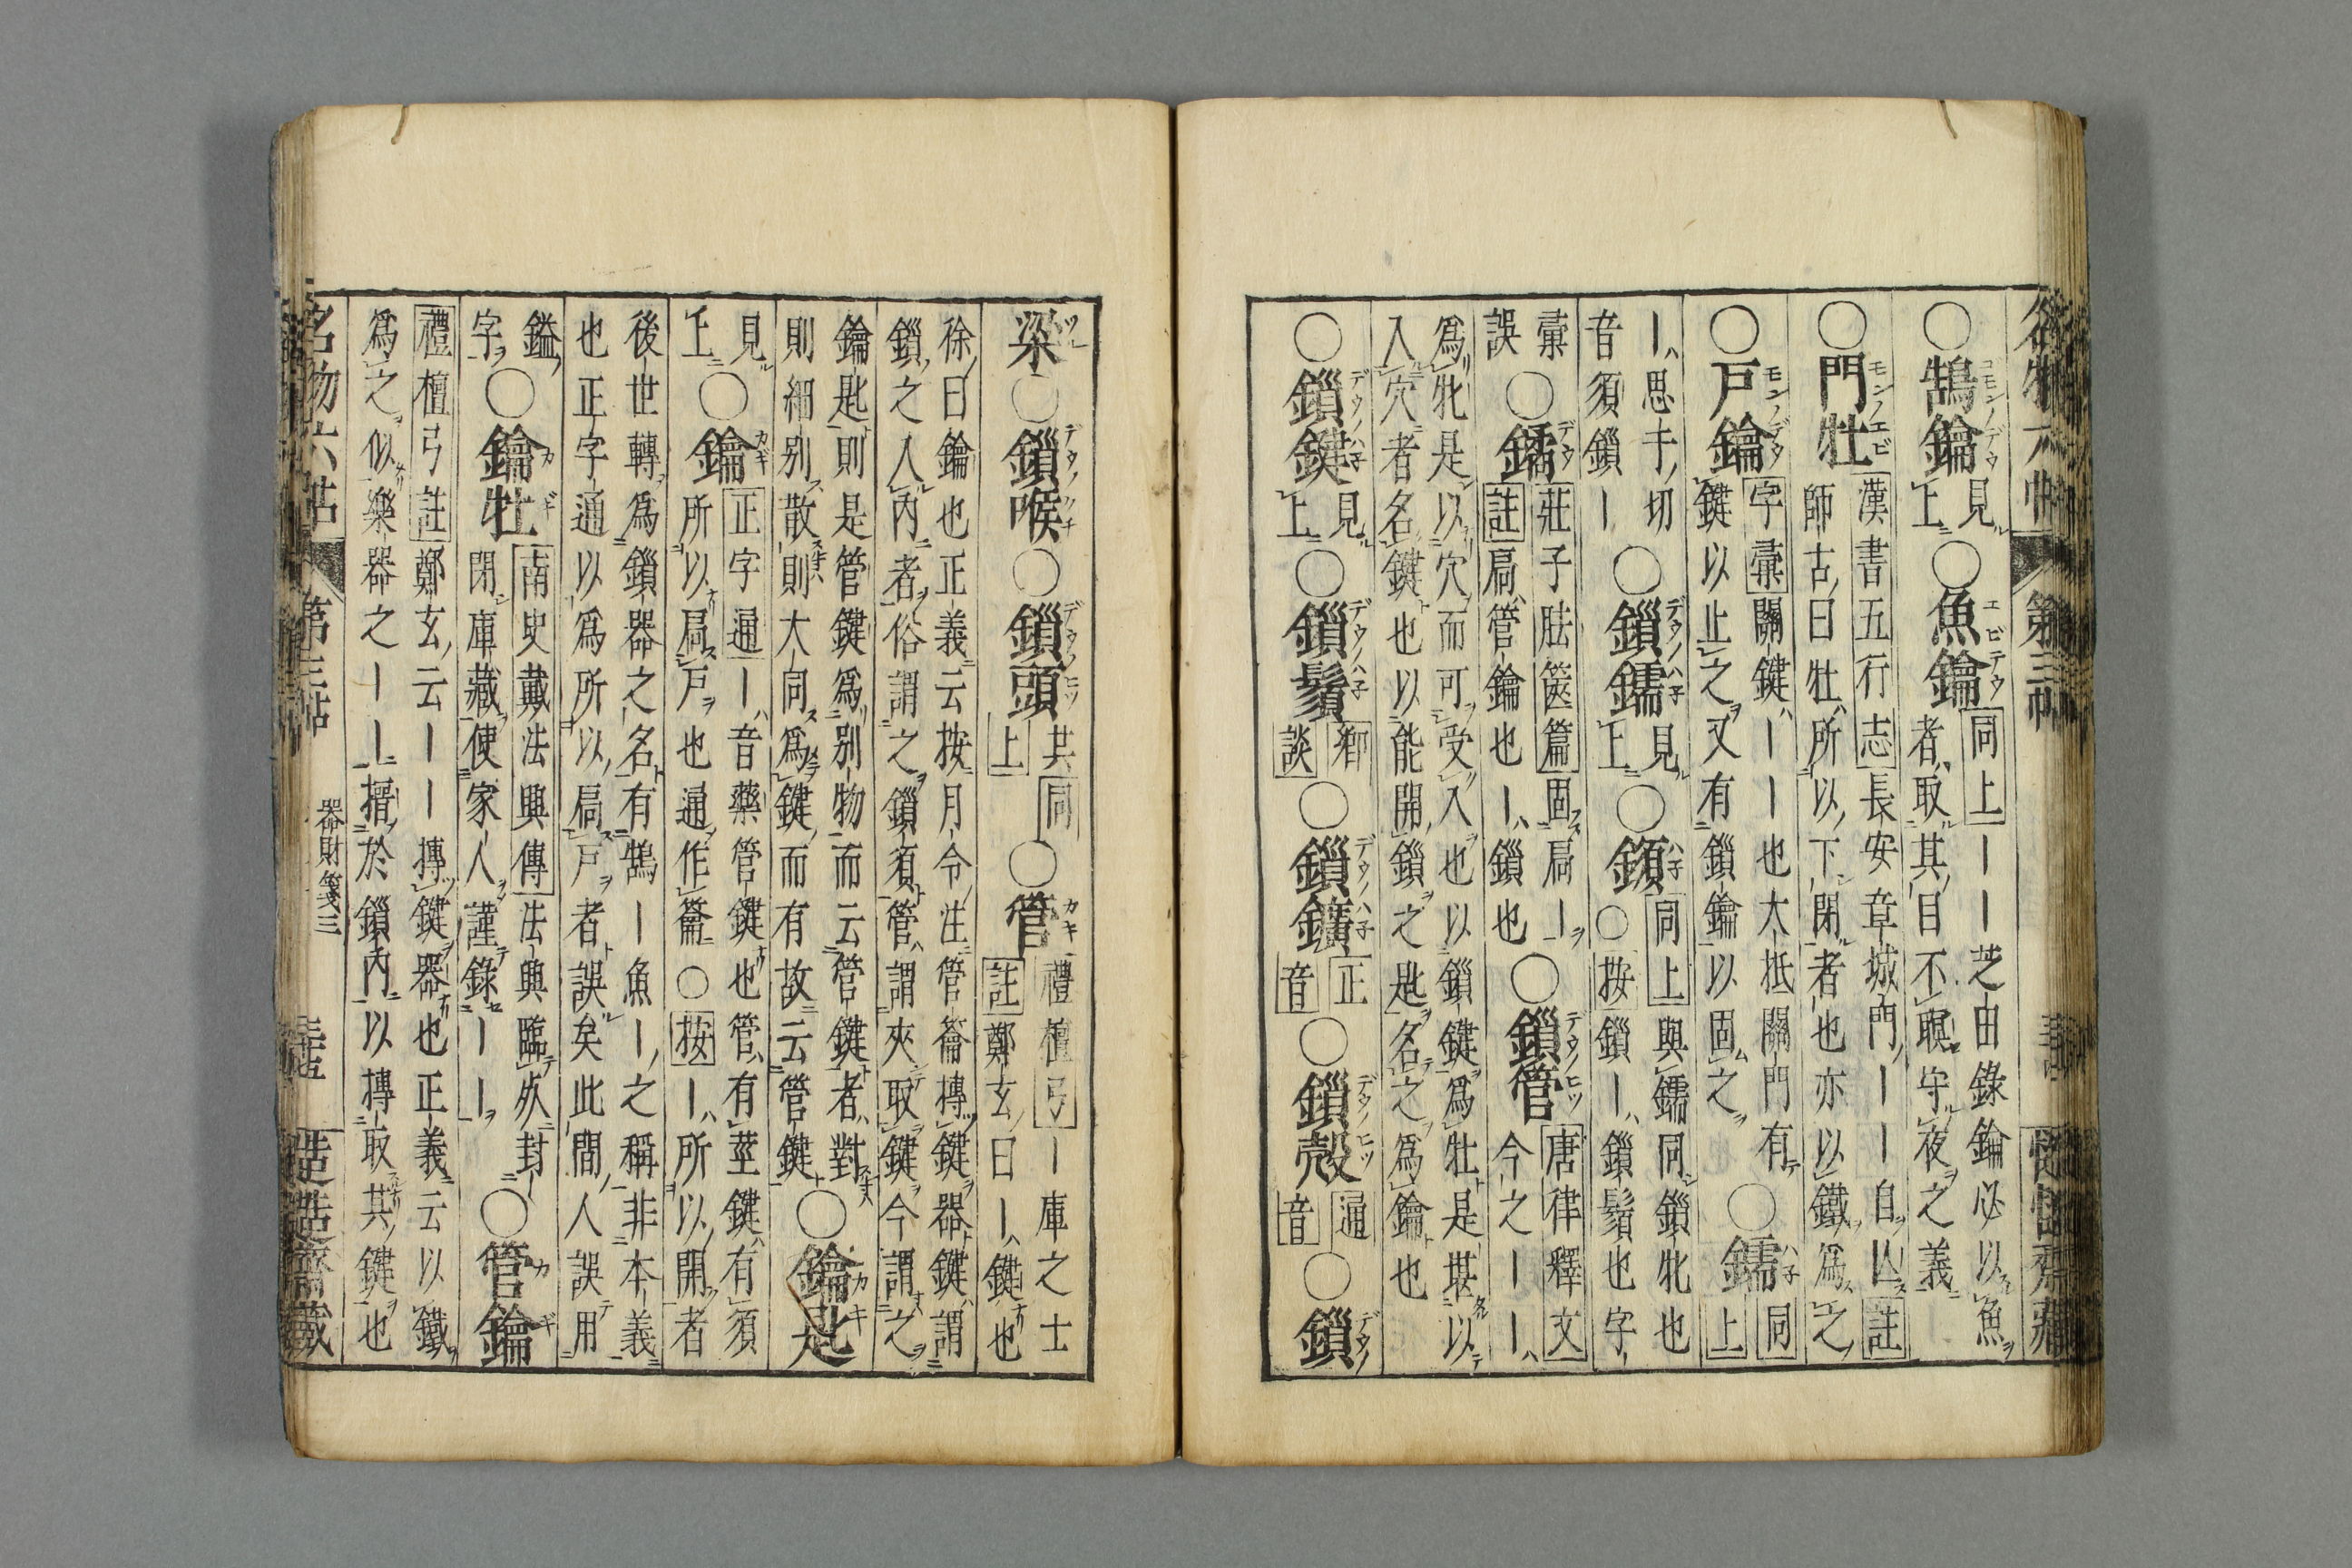 名物六帖 第三帖
○鵠鑰 見上 ○魚鑰 同上 ーー芝田錄鑰必以魚
者取其目不瞑守夜之義
○門牡 漢書五行志 長安章城門ーー自亾 註
師古曰牡所以下閉者也亦以鐵爲之
○戸鑰 字彙 關鍵ーー也大抵關門有
鍵以止之又有鎖鑰以固之 ○鑐 同上
ー思于切
音須鎖ー ○鎖鑐 見上 ○䪴 同上 與鑐同鎖牝也
○按鎖ー鎖鬚也字
彙誤 ○鐍 莊子胠篋篇 固扃ー
註 扃管鑰也ー鎖也 ○鎖管 唐律釋文
今之ーー
爲牝是以穴而可受入也以鎖鍵爲牡是堪以
入穴者名鍵也以能開鎖之匙名之爲鑰也
○鎖鍵 見上 ○鎖鬚 郷談 ○鎖鑛 正音 ○鎖殼 通音 ○鎖
梁 ○鎖喉 ○鎖頭 其同上 ○管 禮檀弓 ー庫之士
註 鄭玄曰ー鍵也
徐曰鑰也正義云按月令注管籥摶鍵器鍵謂
鎖之入内者俗謂之鎖須管謂夾取鍵今謂之
鑰匙則是管鍵爲別物而云管鍵者對
則細別散則大同爲鍵而有故云管鍵 ○鑰匙
見上 ○鑰 正字通 ー音藥管鍵也管有莖鍵有須
所以扃戸也通作籥○按ー所以開者
後世轉爲鎖器之名有鵠ー魚ー之稱非本義
也正字通以爲所以扃戸者誤矣此間人誤用
鎰字 ○鑰牡 南史戴法興傳 法興臨死封
閉庫藏使家人謹錄ーー ○管鑰
禮檀弓註 鄭玄云ーー摶鍵器也正義云以鐵
爲之似樂器之ーー搢於鎖内以摶取其鍵也
名物六帖 第三帖 器財箋三